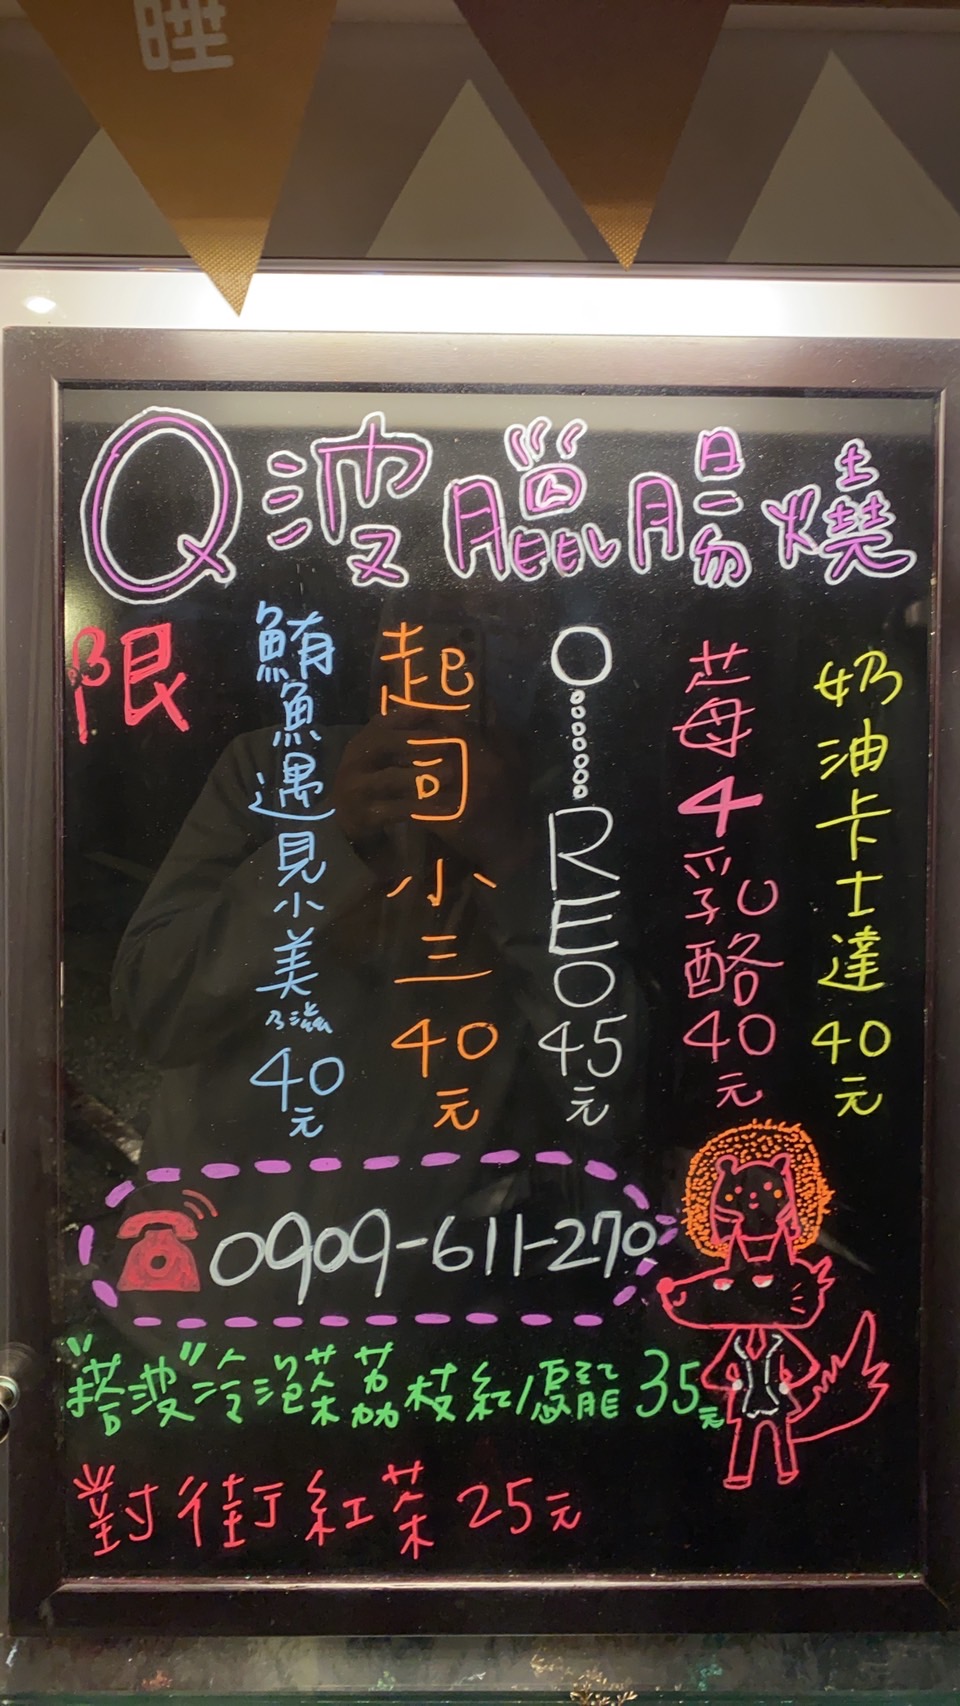 睡
Q波臘腸燒
奶油卡士達40元
芒莓4乳酪40元
O……REO45元
起司小三40元
鮪魚遇見小美乃滋40元
限
0909-611-270
"搭波"冷泡茶荔枝紅/凍龍35元
對街紅茶25元